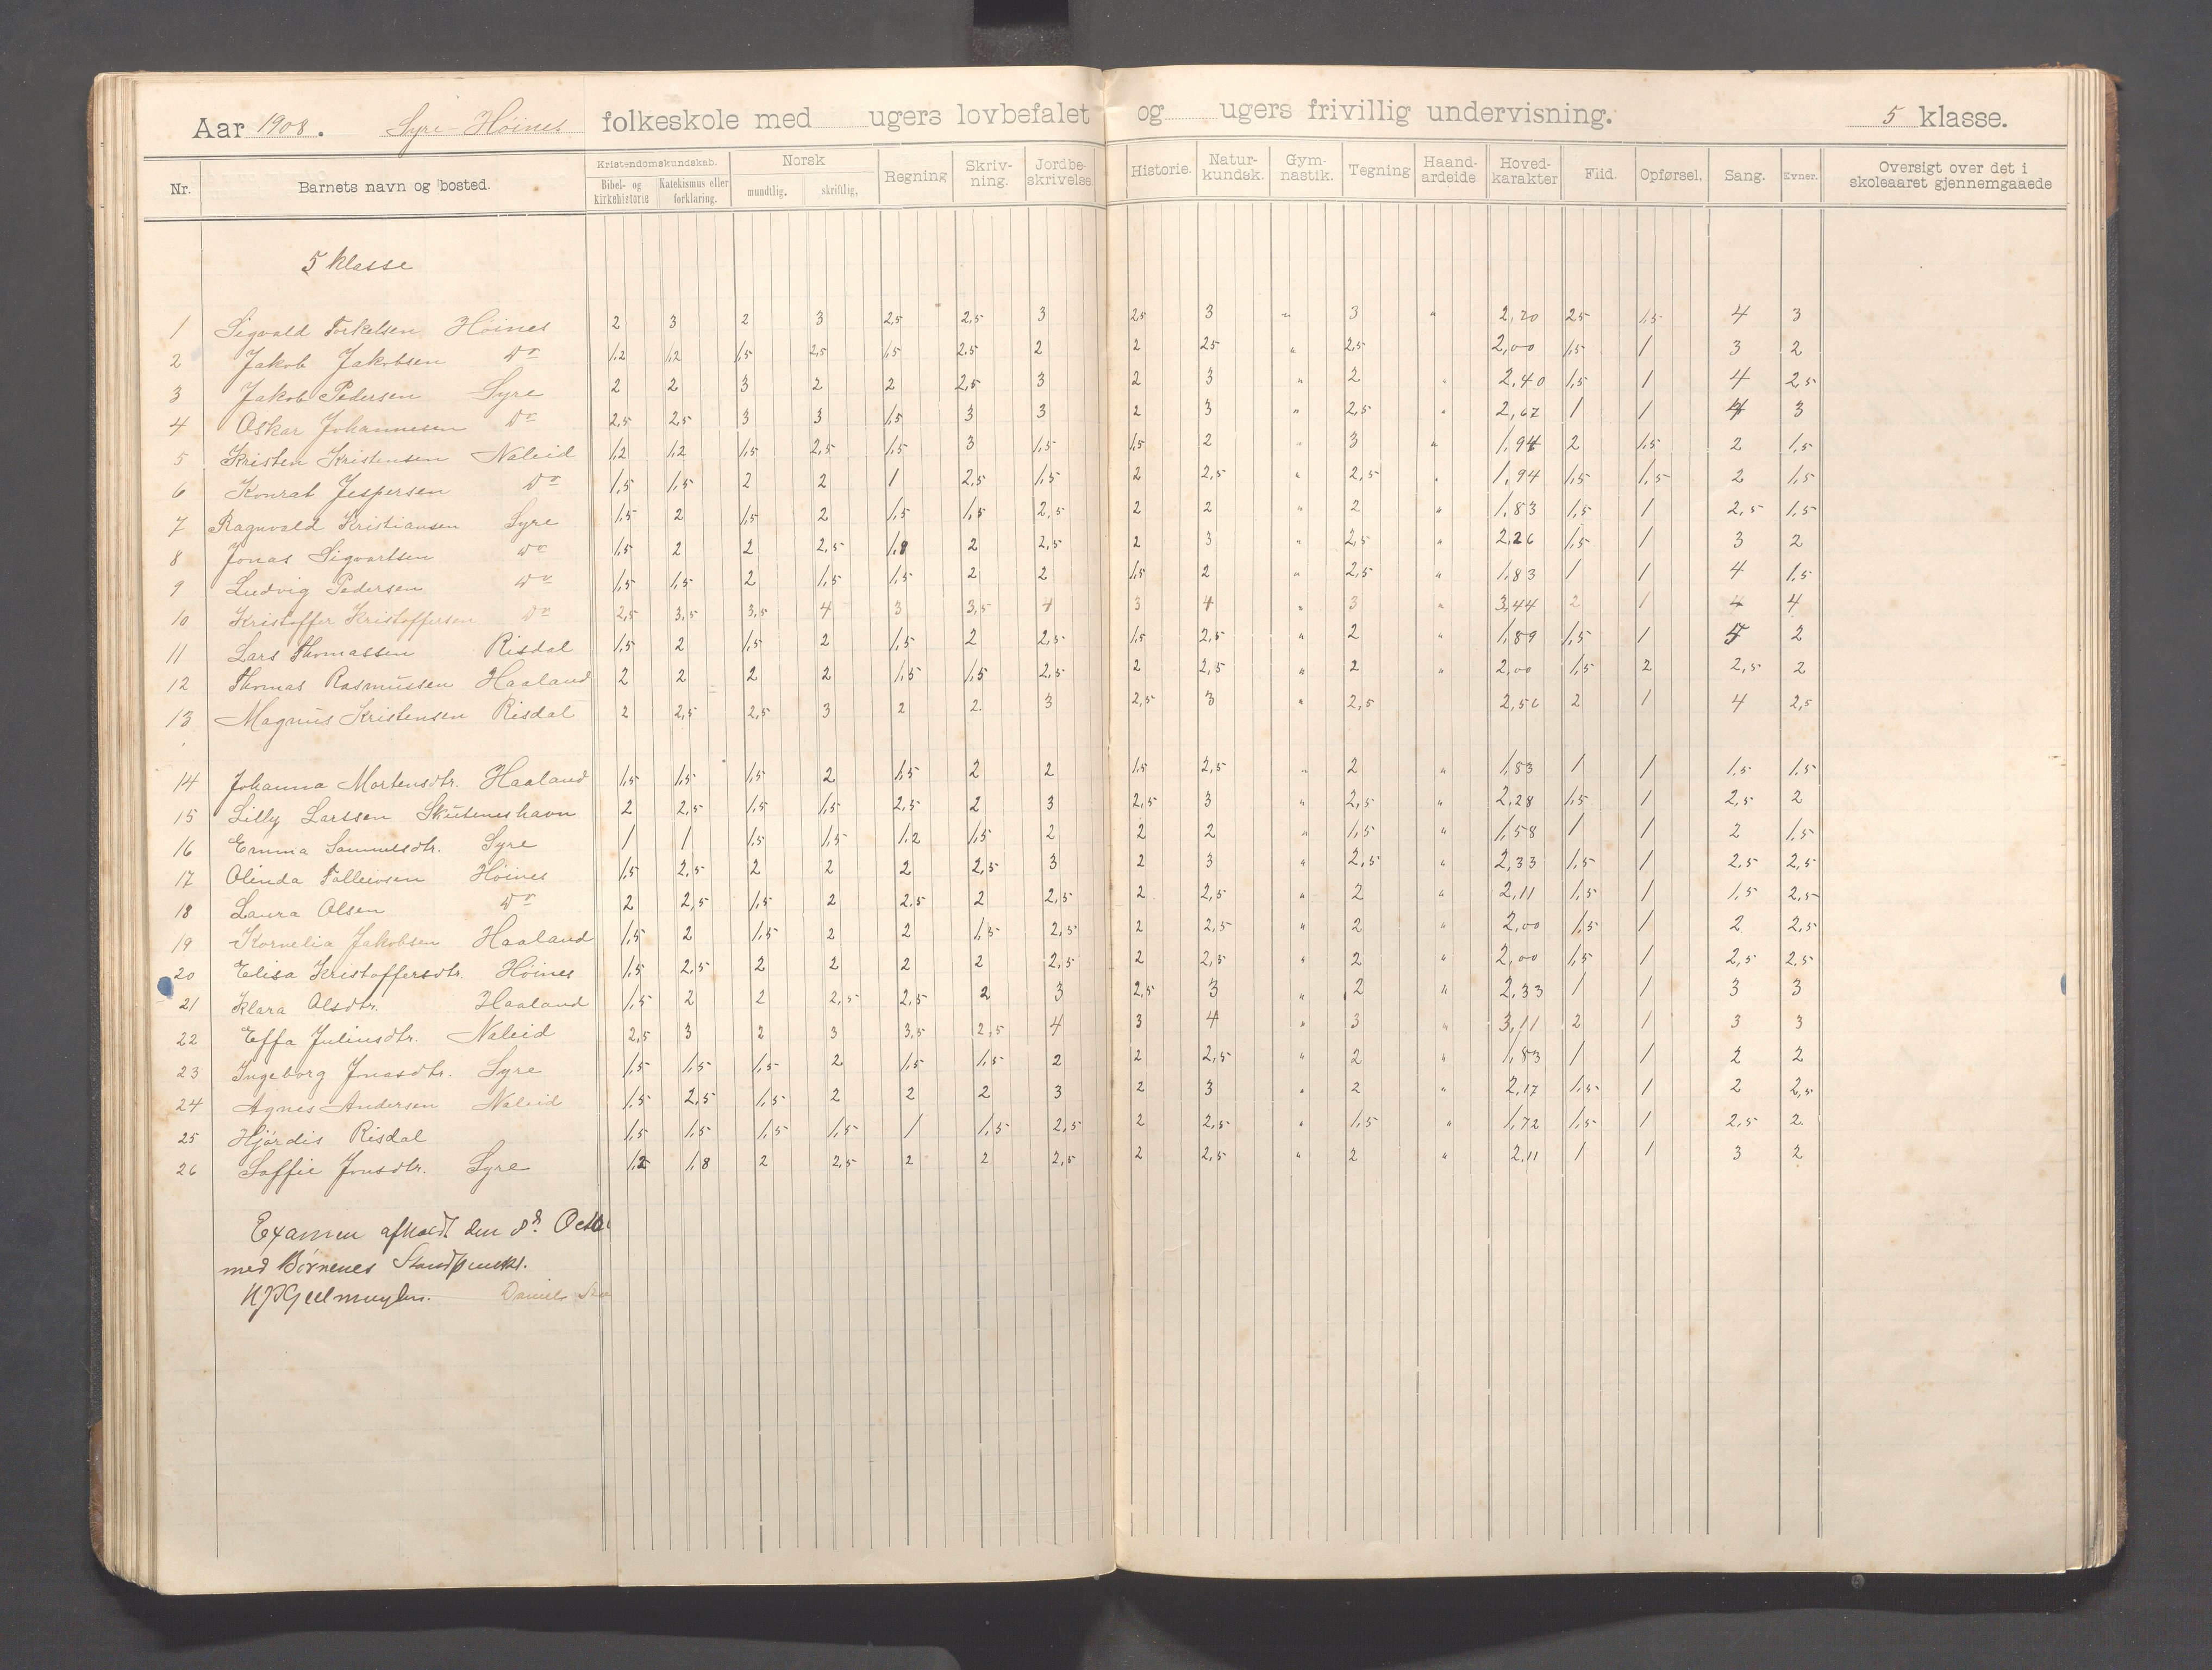 Aar 1908. Syre-Høines folkeskole med ugers lovbefalet og ugers frivillig undervisning. 5 klasse.
Nr. Barnets navn og bosted. Kristendomskundskab. Bibel- og kirkehistorie Katekismus eller forklaring. Norsk mundtlig. skriftlig, Regning Skriv-ning. Jordbe-skrivelse. Historie. Natur-kundsk. Gym-nastik. Tegning Haand-arbeide Hoved-karakter Flid. Opførsel. Sang. Evner. Oversigt over det i skoleaaret gjennemgaaede
5 klasse
1 Sigvald Torkelsen Høines 2 3 2 3 2,5 2,5 3 2,5 3 " 3 " 2,70 2,5 1,5 4 3
2 Jakob Jakobsen Do 1,2 1,2 1,5 2,5 1,5 2,5 2 2 2,5 " 2,5 2,00 1,5 1 3 2
3 Jakob Pedersen Syre 2 2 3 2 2 2,5 3 2 3 " 2 " 2,40 1,5 1 4 2,5
4 Oskar Johannesen Do 2,5 2,5 3 3 1,5 3 3 2 3 " 2,5 " 2,67 1 1 4 3
5 Kristen Kristensen Naleid 1,2 1,2 1,5 2,5 1,5 3 1,5 1,5 2 " 3 " 1,94 2 1,5 2 1,5
6 Konrat Jespersen Do 1,5 1,5 2 2 1 2,5 1,5 2 2,5 " 2,5 " 1,94 1,5 1,5 2 1,5
7 Ragnvald Kristiansen Syre 1,5 2 1,5 2 1,5 1,5 2,5 2 2 " 2 " 1,83 1,5 1 2,5 1,5
8 Jonas Sigvartsen Do 1,5 2 2 2,5 1,8 2 2,5 2 3 " 2,5 " 2,26 1,5 1 3 2
9 Ludvig Pedersen Do 1,5 1,5 2 1,5 1,5 2 2 1,5 2 " 2,5 " 1,83 1 1 4 1,5
10 Kristoffer Kristoffersen Do 2,5 3,5 3,5 4 3 3,5 4 3 4 " 3 " 3,44 2 1 4 4
11 Lars Thomassen Risdal 1,5 2 1,5 2 1,5 2 2,5 1,5 2,5 " 2 " 1,89 1,5 1 5 2
12 Thomas Rasmussen Haaland 2 2 2 2 1,5 1,5 2,5 2 2,5 " 2 " 2,00 1,5 2 2,5 2
13 Magnus Kristensen Risdal 2 2,5 2,5 3 2 2. 3 2,5 3 " 2,5 2,56 2 1 4 2,5
14 Johanna Mortensdtr. Haaland 1,5 1,5 1,5 2 1,5 2 2 1,5 2,5 " 2 " 1,83 1 1 1,5 1,5
15 Lilly Larssen Skuteneshavn 2 2,5 1,5 1,5 2,5 2 3 2,5 3 " 2,5 " 2,28 1,5 1 2,5 2
16 Emma Samuelsdtr. Syre 1 1 1,5 1,5 1,2 1,5 2 2 2 " 1,5 " 1,58 1 1 2 1,5
17 Olinda Tolleivsen Høines 1,5 2,5 2 2 2 2,5 3 2 3 " 2,5 " 2,33 1,5 1 2,5 2,5
18 Laura Olsen Do 2 2,5 1,5 2 2,5 2 2,5 2 2,5 " 2 " 2,11 1,5 1 1,5 2,5
19 Kornelia Jakobsen Haaland 1,5 2 1,5 2 2 1,5 2,5 2 2,5 " 2 " 2,00 1,5 1 2 2,5
20 Elisa Kristoffersdtr. Høines 1,5 2,5 2 2 2 2 2,5 2 2,5 " 2 " 2,00 1,5 1 2,5 2,5
21 Klara Olsdtr. Haaland 1,5 2 2 2,5 2,5 2 3 2,5 3 " 2 " 2,33 1 1 3 3
22 Effa Juliusdtr. Naleid 2,5 3 2 3 3,5 2,5 4 3 4 " 3 " 3,11 2 1 3 3
23 Ingeborg Jonasdtr. Syre 1,5 1,5 1,5 2 1,5 1,5 2 2 2,5 " 2 " 1,83 1 1 2 2
24 Agnes Andersen Naleid 1,5 2,5 1,5 2 2 2 3 2 3 " 2 " 2,17 1,5 1 2 2,5
25 Hjørdis Risdal 1,5 1,5 1,5 1,5 1 1,5 2,5 2 2,5 " 1,5 " 1,72 1,5 1 2,5 2
26 Soffie Jonsdtr. Syre 1,2 1,8 2 2,5 2 2 2,5 2 2,5 " 2 " 2,11 1 1 3 2
Examen afholdt den 8de
med Børnenes Standpunkt.
Daniel